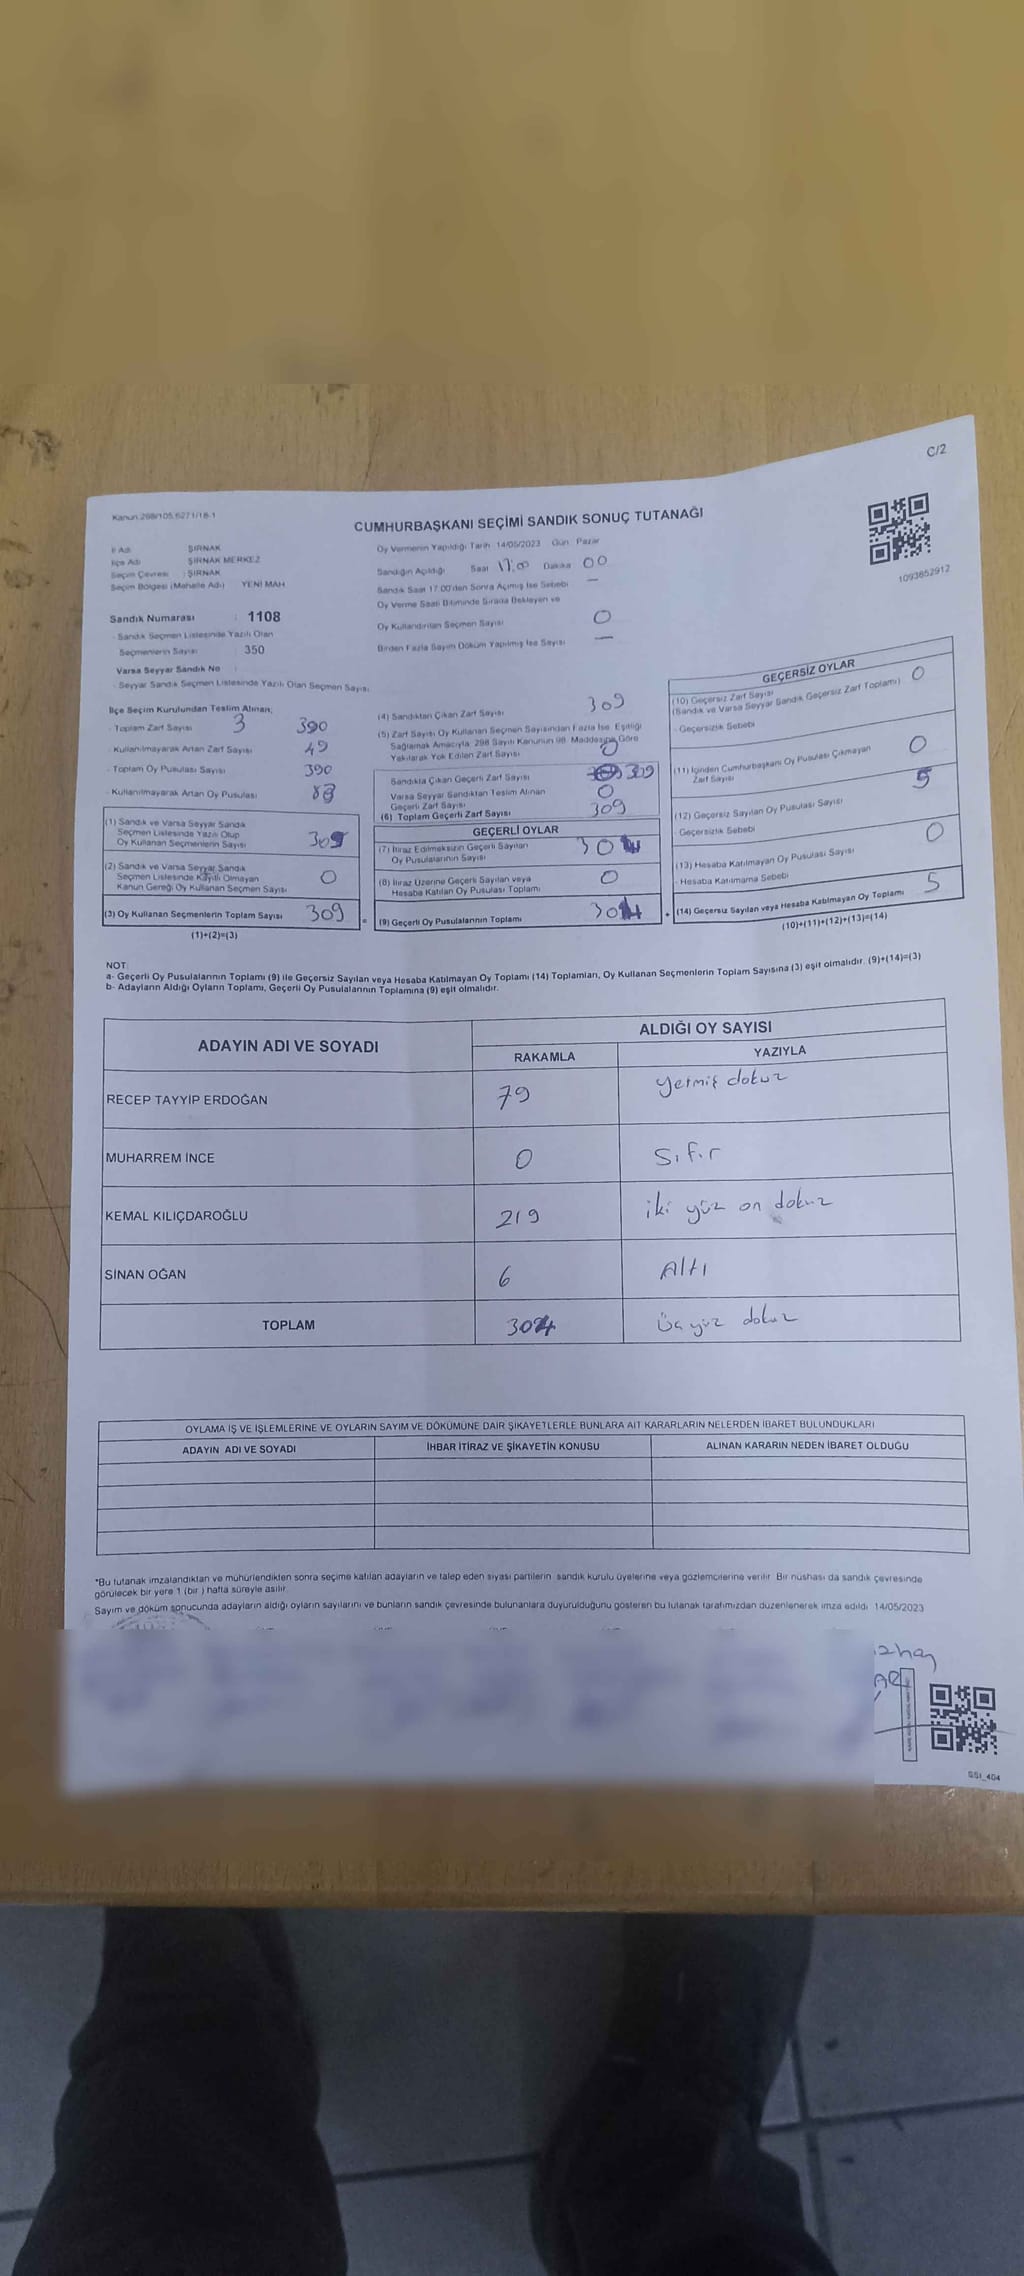 C/2
Kanun 298/105,6271/18-1
CUMHURBAŞKANI SEÇİMİ SANDIK SONUÇ TUTANAĞI
1093652912
İl Adı : ŞIRNAK
İlçe Adı : ŞIRNAK MERKEZ
Seçim Çevresi : ŞIRNAK
Seçim Bölgesi (Mahalle Adı) YENİ MAH
Sandık Numarası : 1108
- Sandık Seçmen Listesinde Yazılı Olan
Seçmenlerin Sayısı : 350
Varsa Seyyar Sandık No :
- Seyyar Sandık Seçmen Listesinde Yazılı Olan Seçmen Sayısı
Oy Vermenin Yapıldığı Tarih 14/05/2023 Gün Pazar
Sandığın Açıldığı Saat 17:00 Dakika 00
Sandık Saat 17:00'den Sonra Açılmış İse Sebebi —
Oy Verme Saati Bitiminde Sırada Bekleyen ve
Oy Kullandırılan Seçmen Sayısı 0
Birden Fazla Sayım Döküm Yapılmış İse Sayısı —
İlçe Seçim Kurulundan Teslim Alınan;
- Toplam Zarf Sayısı 3 390
- Kullanılmayarak Artan Zarf Sayısı 49
- Toplam Oy Pusulası Sayısı 390
- Kullanılmayarak Artan Oy Pusulası
(1) Sandık ve Varsa Seyyar Sandık
Seçmen Listesinde Yazılı Olup
Oy Kullanan Seçmenlerin Sayısı 309
(2) Sandık ve Varsa Seyyar Sandık
Seçmen Listesinde Kayıtlı Olmayan
Kanun Gereği Oy Kullanan Seçmen Sayısı 0
(3) Oy Kullanan Seçmenlerin Toplam Sayısı 309
(1)+(2)=(3)
(4) Sandıktan Çıkan Zarf Sayısı 309
(5) Zarf Sayısı Oy Kullanan Seçmen Sayısından Fazla İse, Eşitliği
Sağlamak Amacıyla, 298 Sayılı Kanunun 98. Maddesine Göre
Yakılarak Yok Edilen Zarf Sayısı 0
Sandıkta Çıkan Geçerli Zarf Sayısı 309
Varsa Seyyar Sandıktan Teslim Alınan
Geçerli Zarf Sayısı 0
(6) Toplam Geçerli Zarf Sayısı 309
GEÇERLİ OYLAR
(7) İtiraz Edilmeksizin Geçerli Sayılan
Oy Pusulalarının Sayısı 304
(8) İtiraz Üzerine Geçerli Sayılan veya
Hesaba Katılan Oy Pusulası Toplamı 0
(9) Geçerli Oy Pusulalarının Toplamı 304
=
+
GEÇERSİZ OYLAR
(10) Geçersiz Zarf Sayısı 0
(Sandık ve Varsa Seyyar Sandık Geçersiz Zarf Toplamı)
- Geçersizlik Sebebi
(11) İçinden Cumhurbaşkanı Oy Pusulası Çıkmayan
Zarf Sayısı 0
(12) Geçersiz Sayılan Oy Pusulası Sayısı 5
- Geçersizlik Sebebi
(13) Hesaba Katılmayan Oy Pusulası Sayısı 0
- Hesaba Katılmama Sebebi
(14) Geçersiz Sayılan veya Hesaba Katılmayan Oy Toplamı 5
(10)+(11)+(12)+(13)=(14)
NOT:
a- Geçerli Oy Pusulalarının Toplamı (9) ile Geçersiz Sayılan veya Hesaba Katılmayan Oy Toplamı (14) Toplamları, Oy Kullanan Seçmenlerin Toplam Sayısına (3) eşit olmalıdır. (9)+(14)=(3)
b- Adayların Aldığı Oyların Toplamı, Geçerli Oy Pusulalarının Toplamına (9) eşit olmalıdır.
ADAYIN ADI VE SOYADI
ALDIĞI OY SAYISI
RAKAMLA YAZIYLA
RECEP TAYYİP ERDOĞAN 79 yetmiş dokuz
MUHARREM İNCE 0 Sıfır
KEMAL KILIÇDAROĞLU 219 iki yüz on dokuz
SİNAN OĞAN 6 Altı
TOPLAM 304 üç yüz dokuz
OYLAMA İŞ VE İŞLEMLERİNE VE OYLARIN SAYIM VE DÖKÜMÜNE DAİR ŞİKAYETLERLE BUNLARA AİT KARARLARIN NELERDEN İBARET BULUNDUKLARI
ADAYIN ADI VE SOYADI İHBAR İTİRAZ VE ŞİKAYETİN KONUSU ALINAN KARARIN NEDEN İBARET OLDUĞU
*Bu tutanak imzalandıktan ve mühürlendikten sonra seçime katılan adayların ve talep eden siyasi partilerin sandık kurulu üyelerine veya gözlemcilerine verilir. Bir nüshası da sandık çevresinde
görülecek bir yere 1 (bir ) hafta süreyle asılır.
Sayım ve döküm sonucunda adayların aldığı oyların sayılarını ve bunların sandık çevresinde bulunanlara duyurulduğunu gösteren bu tutanak tarafımızdan düzenlenerek imza edildi. 14/05/2023
SSI_404